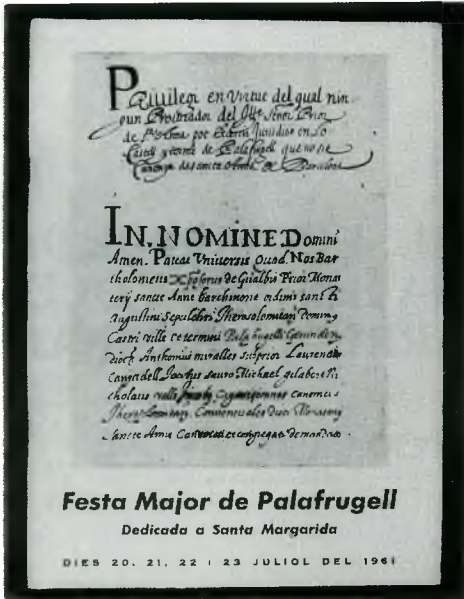 Privilegi en virtut del qual nin
gun Procurador del Ille Señor Prior
de Sta Anna pot exercir
Castell y terme de Palafrugell que no sie
Canonge de Santa Anna de Barcelona
IN. NOMINE Domini
Amen. Pateat Universis Quod. Nos Bar
tholomeus de Gualbis Prior Monas
terij sancte Anne barchinone ordinis santi
augustini Sepulchri Iherosolomitani Dominus
Castri ville et termini Palafrugelli Gerunden
dioch Anthonius miralles subprior Laurentius
Jacobus Michael gilabert Ni
cholaus canonici
Conventuales dicti Monasterij
Sancte Anne Convocati et congregati de mandato
Festa Major de Palafrugell
Dedicada a Santa Margarida
DIES 20, 21, 22 I 23 JULIOL DEL 1961